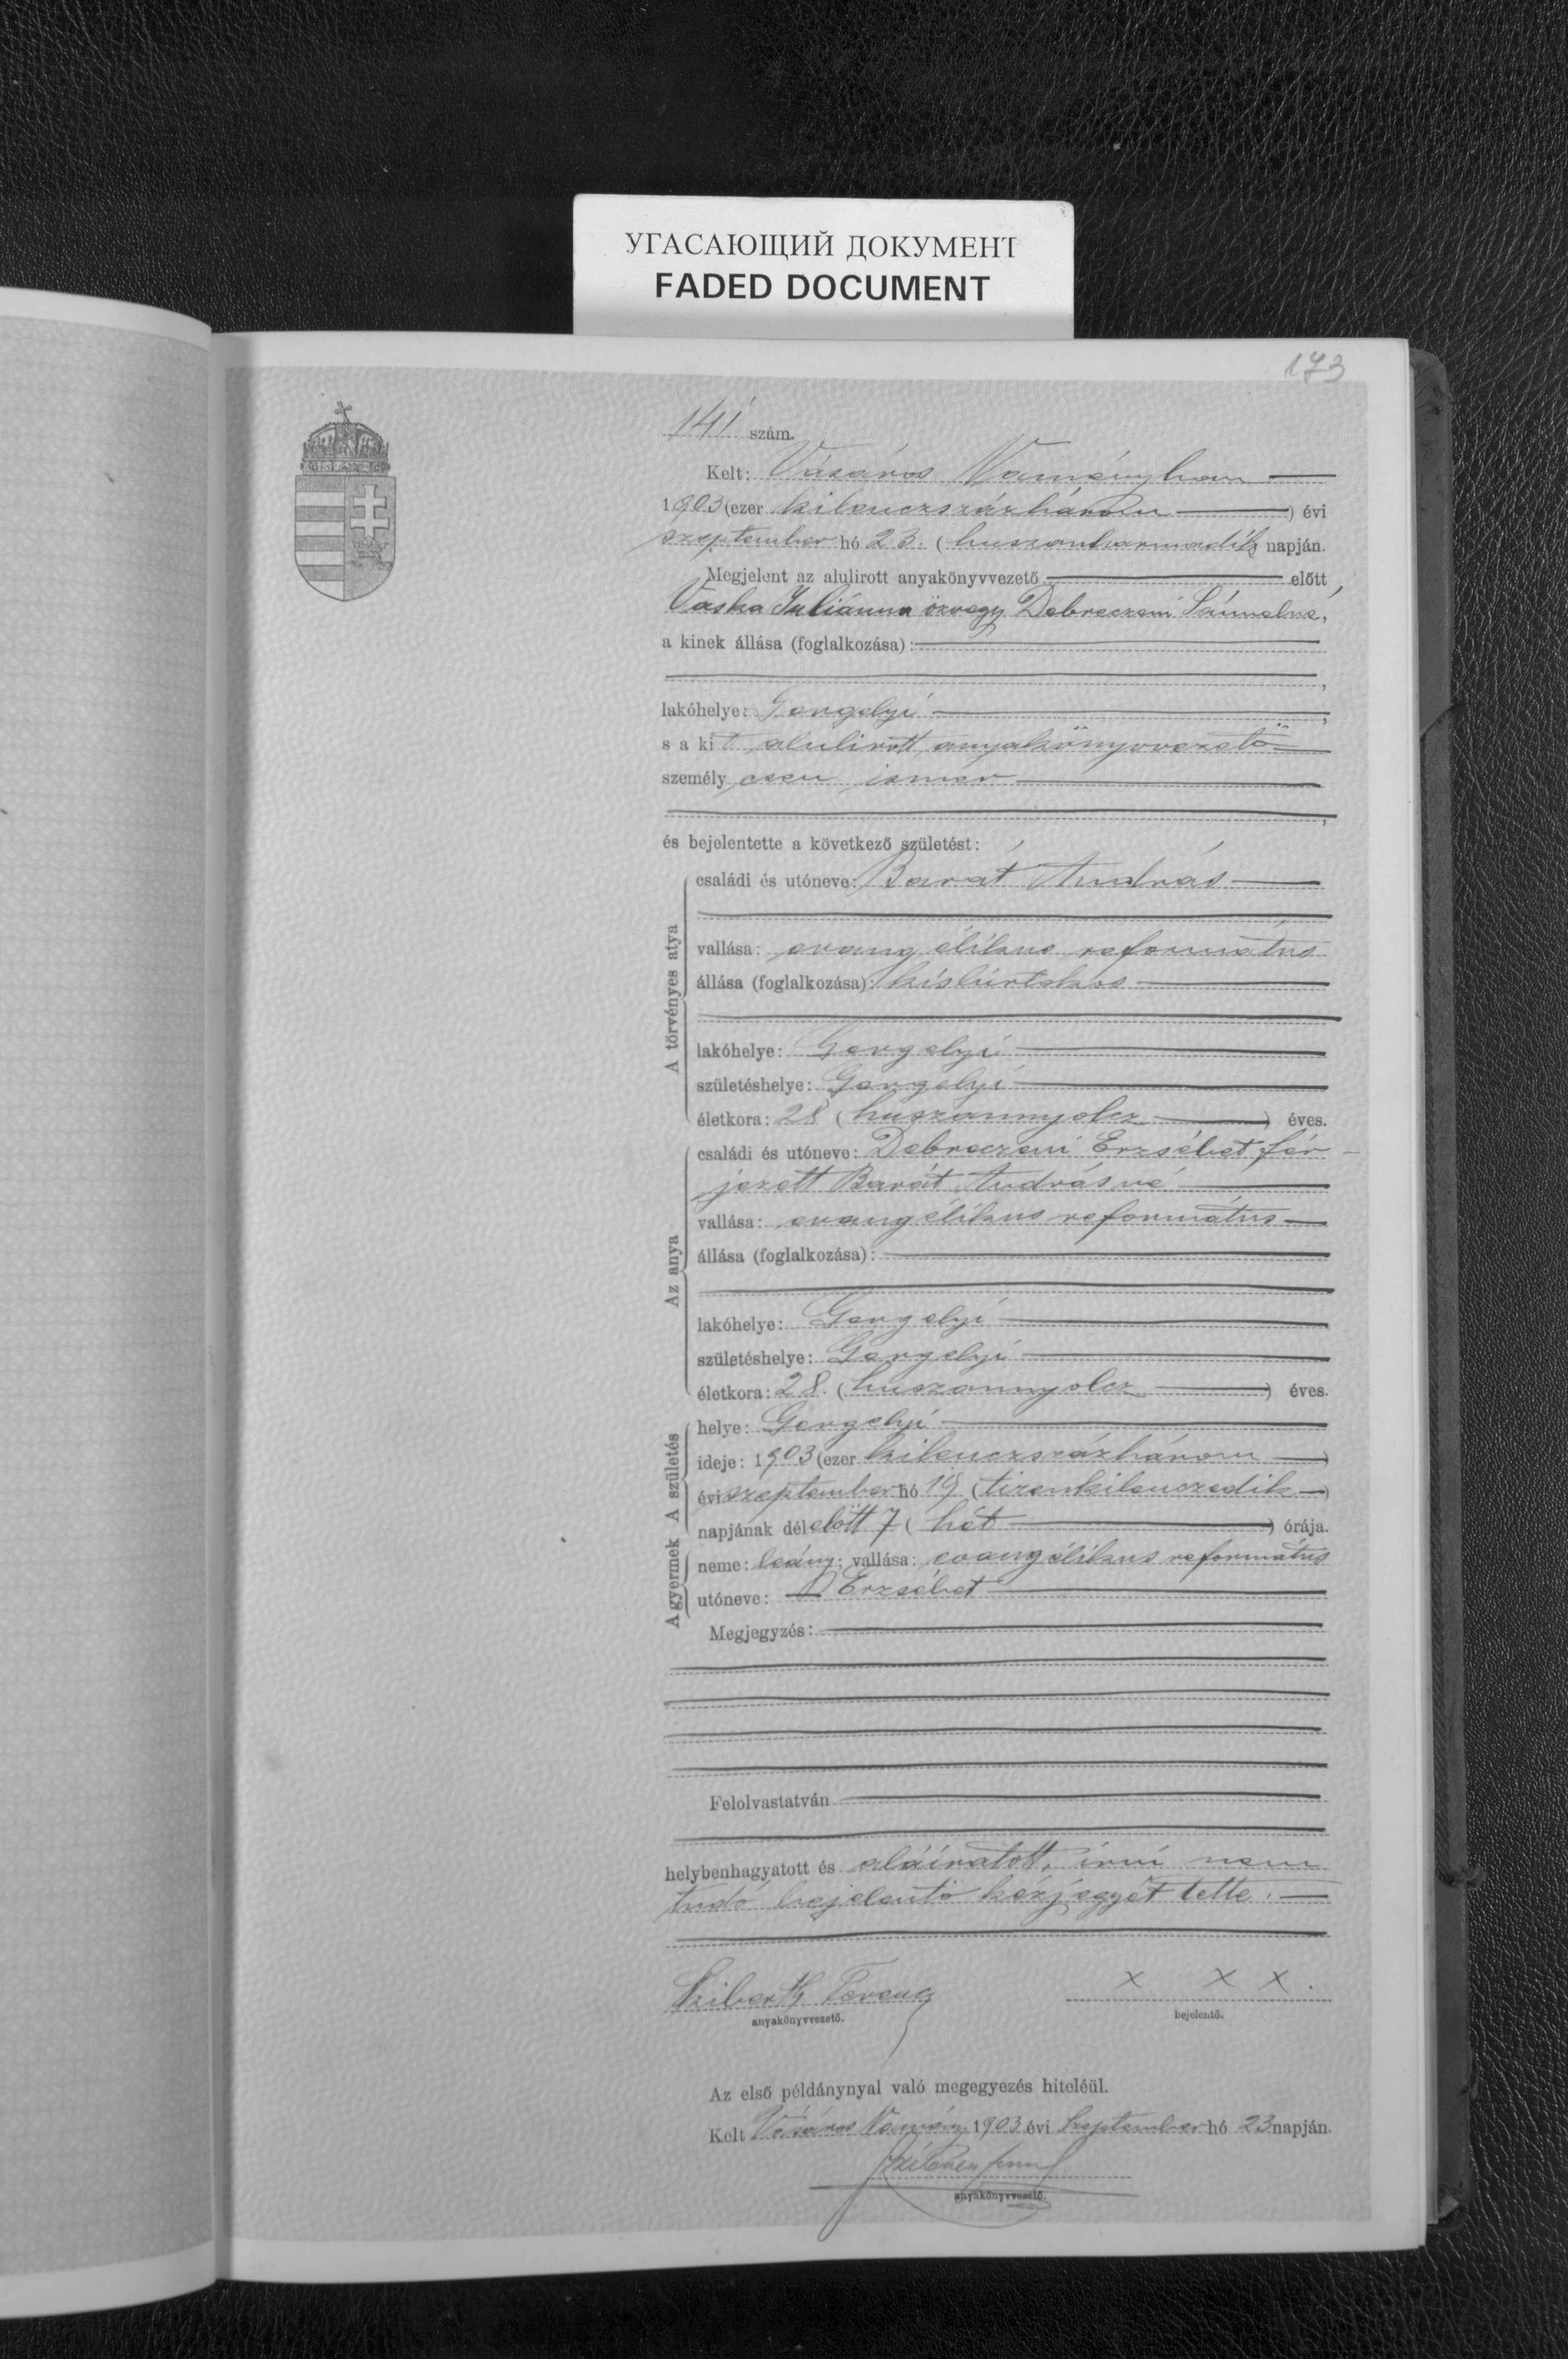 УГАСАЮЩИЙ ДОКУМЕНТ
FADED DOCUMENT
173
141 szám.
Kelt: Vásáros Naményban
1903 (ezer kilenczszázhárom) évi
szeptember hó 23. (huszonharmadik) napján.
Megjelent az alulirott anyakönyvvezető előtt
Vaska Juliánna özvegy Debreczeni Sámuelné,
a kinek állása (foglalkozása):
lakóhelye: Gergelyi
s a kit alulirott anyakönyvvezető
személyesen ismer
és bejelentette a következő születést:
A törvényes atya
családi és utóneve: Barát András
vallása: evangélikus református
állása (foglalkozása): kisbirtokos
lakóhelye: Gergelyi
születéshelye: Gergelyi
életkora: 28 (huszonnyolcz) éves.
Az anya
családi és utóneve: Debreczeni Erzsébet fér-
jezett Barát Andrásné
vallása: evangélikus református
állása (foglalkozása):
lakóhelye: Gergelyi
születéshelye: Gergelyi
életkora: 28. (huszonnyolcz) éves.
A születés
helye: Gergelyi
ideje: 1903 (ezer kilenczszázhárom)
évi szeptember hó 19 (tizenkilenczedik)
napjának délelőtt 7 (hét) órája.
A gyermek
neme: leány; vallása: evangélikus református
utóneve: Erzsébet
Megjegyzés:
Felolvastatván
helybenhagyatott és aláiratott, irni nem
tudó bejelentő kézjegyét tette.
Ferencz x x x.
anyakönyvvezető. bejelentő.
Az első példánynyal való megegyezés hiteléül.
Kelt Vásáros Namény 1903 évi Szeptember hó 23 napján.
anyakönyvvezető.